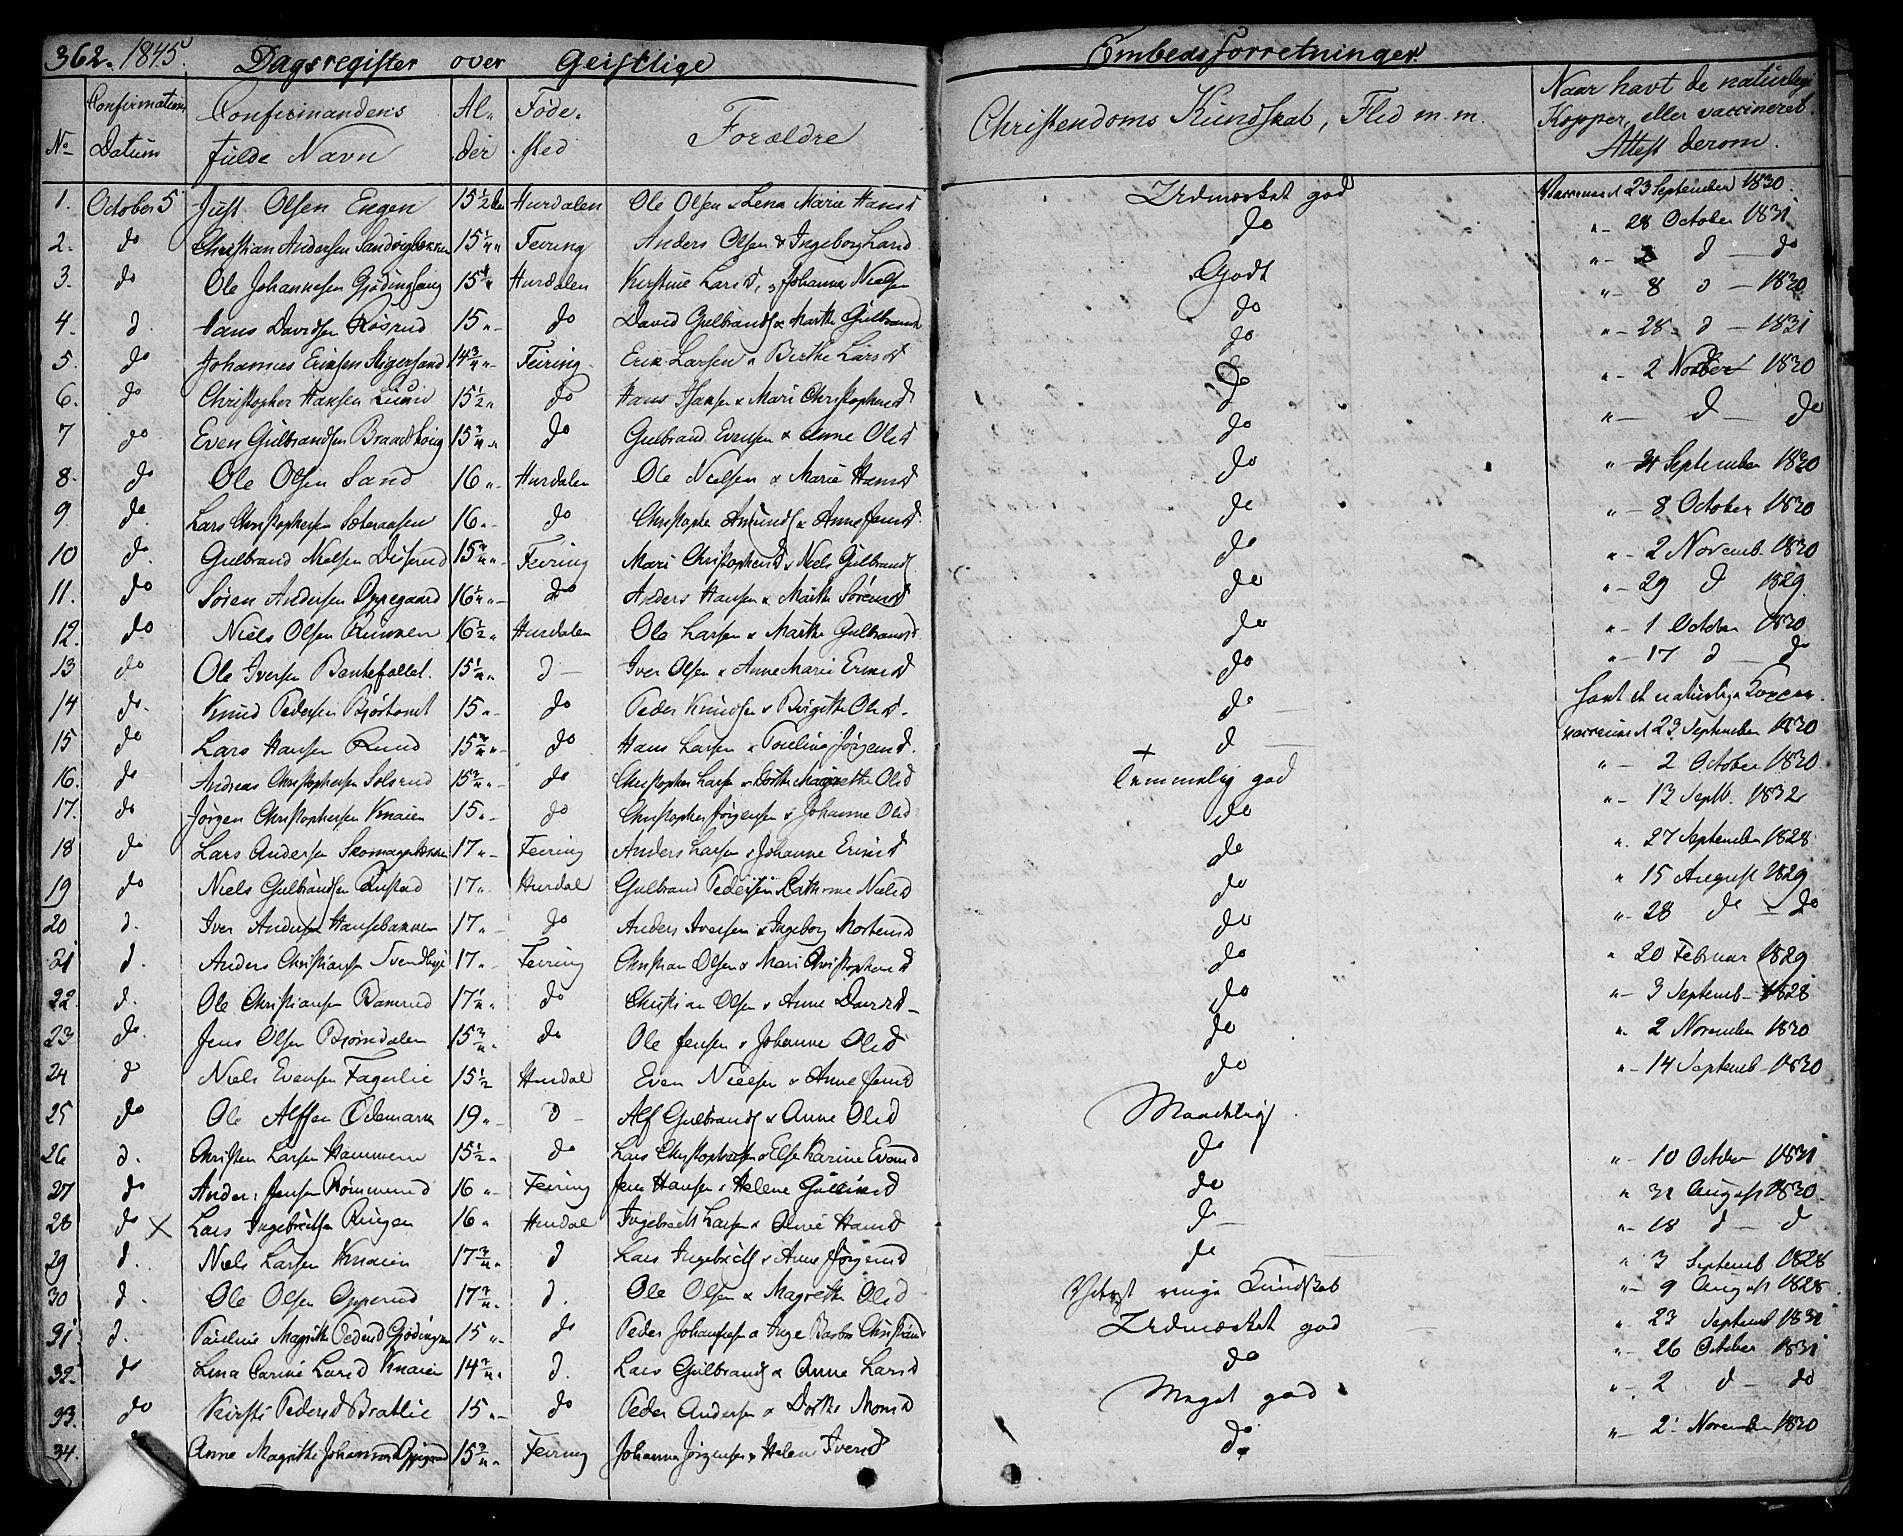 362. 1845. Dagsregister over Geistlige Embedsforretninger.
No Confirmations Datum Confirmandens fulde Navn Al„der Føde„sted Forældre Christendoms Kundskab, Flid m. m. Naar havt de naturlige Kopper, eller vaccineret. Attest derom.
1. October 5 Just Olsen Engen 15 1/2 Hurdalen Ole Olsen & Lena Marie Hansd Udmærket god Vaccineret 23 September 1830.
2. do Christian Andersen 15 1/4 „ Feiring Anders Olsen & Ingeborg Larsd do „ 28 October 1831
3. do Ole Johannesen Gjødingseng 15 Hurdalen Kirstine Larsd, & Johannes Nielsen Godt „ d — do
4. d. Hans Davidsen Røsrud 15 „ do David Gulbrands & Marthe Gulbrands do „ 8 d — 1830
5. do Johannes Eriksen Stigersand 14 3/4 „ Feiring Erik Larsen & Berthe Larsd do „ 28 d — 1831
6. do Christopher Hansen Lund 15 1/2 „ do Hans Hansen & Mari Christophersd do „ 2 Novber 1830
7 do Even Gulbrandsen 15 3/4 „ do Gulbrand Evensen & Anne Olsd do „ d — do
8. do Ole Olsen Sand 16 „ Hurdalen Ole Nielsen & Marie Hansd do „ September 1830
9 do Lars Christophersen 16 „ do Christopher Amunds & Anne Jensd do „ 8 October 1830
10 do. Gulbrand Nielsen Diserud 15 3/4 „ Feiring Mari Christophersd & Niels Gulbrands do „ 2 Novemb. 1830
11. do Søren Andersen Oppegaard 16 1/4 „ do Anders Hansen & Marthe Sørensd do „ 29 d 1829.
12. do Niels Olsen Runnen 16 1/2 „ Hurdalen Ole Larsen & Marthe Gulbrandsd do „ 1 October 1830
13 do Ole Iversen 15 1/4 „ d — Iver Olsen & Anne Marie Eriksd do „ 17 d — do
14 do. Knud Pedersen 15 „ do Peder Knudsen & Birgitte Olsd. do havt de naturlige Kopper.
15 do Lars Hansen Ruud 15 3/4 „ do Hans Larsen & Pauline Jørgensd. d — vaccineret 23 September 1830
16. do Andreas Christophersen Solsrud 15 3/4 „ do Christopher Larsen & Dorthe Magrethe Olsd + Temmelig god „ 2 October 1830
17. do Jørgen Christophersen Knaien 15 „ do Christopher Jørgensen & Johanne Olsd do „ 13 Septb. 1832
18 do Lars Andersen 17 „ Feiring Anders Larsen & Johanne Eriksd do „ 27 September 1828
19 do Niels Gulbrandsen Rustad 17 „ Hurdal Gulbrand Pedersen & Cathrine Nielsd do „ 15 August 1829
20 d. Iver Andersen Hansebakken 17 „ do Anders Iversen & Ingeborg Mortensd do „ 28 do — do
21 d. Anders Christiansen 17 „ Feiring Christian Olsen & Mari Christophersd do „ 20 Februar 1829
22. d. Ole Christiansen 17 1/4 „ do Christian Olsen & Anne Davidsd do „ 3 Septemb — 1828
23 do. Jens Olsen Bjørndalen 15 3/4 „ do Ole Jensen & Johanne Olsd do „ 2 November 1830
24 d Niels Evensen Fagerlie 15 1/2 Hurdal Even Nielsen & Anne Jensd do „ 14 Septemb 1830
25 do Ole Alfsen Ødemark 19 „ d — Alf Gulbrands & Anne Olsd Maadelig.
26 d. Christen Larsen Hammeren 15 1/2 „ do Lars Christophersen & Else Karine Evensd do „ 10 October 1831
27 do Anders Jensen 16 „ Feiring Jens Hansen & Helene do „ 31 August 1830.
28 do X Lars Ingebretsen Ringen 16 „ Hurdal Ingebreth Larsen & Hansd do — „ 18 d — d
29 d. Niels Larsen Knaien 17 3/4 „ d Lars Ingebreths & Anne Jørgensd do „ 3 Septemb 1828
30 d. Ole Olsen Opperud 17 3/4 „ d. Ole Olsen & Magrethe Olsd Yderst ringe Kundskab „ 9 August 1828.
31. d. Pauline Magrethe Pedersd 15 „ do Peder Johannesen & Inge Barbro Christians Udmærket god „ 23 Septemb 1831
32. do Lena Carine Larsd Knaien 14 3/4 „ d. Lars Gulbrands & Anne Larsd do „ 26 October 1831
33. do Kirsti Pedersd Bratlie 15 „ do Peder Andersen & Dorthe Monsd Meget god „ 2 d — do
34. Anne Magrethe Johannesd 15 3/4 „ Feiring Johannes Jørgensen & Helene Iversd do „ 2. November 1830